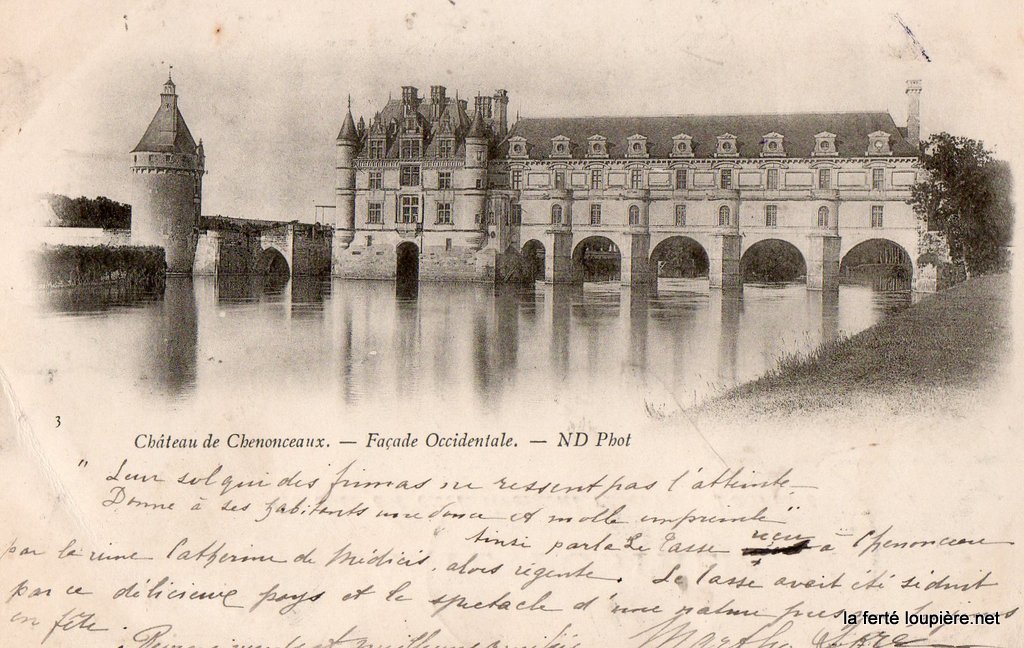 3
Château de Chenonceaux. — Façade Occidentale. — ND Phot
" Leur sol qui des frimas ne ressent pas l'atteinte
Donne à ses habitants une douce et molle empreinte "
" Ainsi parla Le Tasse reçu à Chenonceau
par la reine Catherine de Médicis, alors régente. Le Tasse avait été séduit
par ce délicieux pays et le spectacle d'une nature presque toujours
en fête.
meilleures amitiés Marthe
la ferté loupière.net